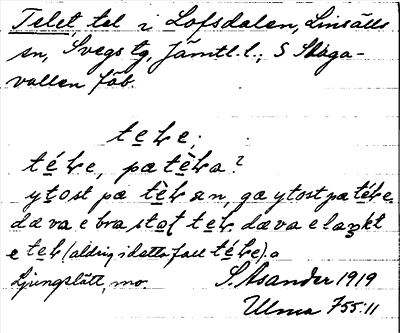 Telet, tel i Lofsdalen, Linsälls
sn, Svegs tg, Jämtl. l.; S Skåga-
vallen fäb.
tele;
téle, pa tèla?
ytost pa tèl æn, ga ytost pa téle.
dæva e bra stot tel dæva e lankt
e tel (aldrig i detta fall téle).
Ljungslätt, mo.
S. Asander 1919
Ulma 755:11